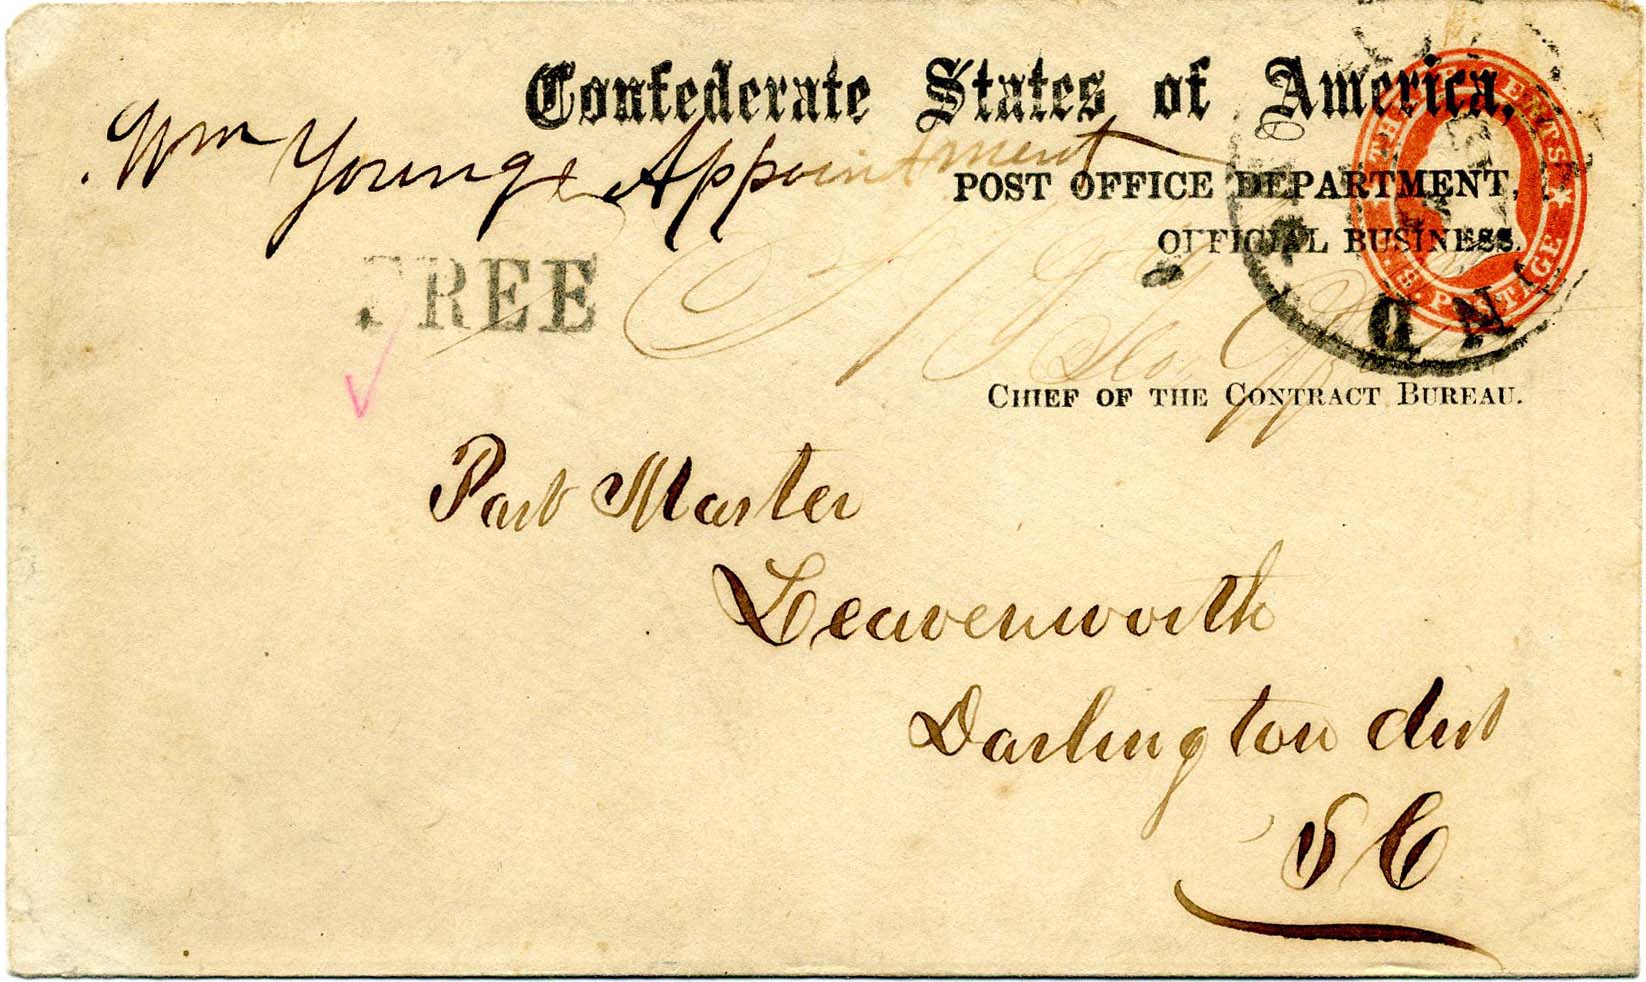 Confederate States of America,
Wm Younge Appointment
POST OFFICE DEPARTMENT,
OFFICIAL BUSINESS.
FREE
CHIEF OF THE CONTRACT BUREAU.
Post Master
Leavenworth
Darlington dist
S C
THREE CENTS
U.S. POSTAGE